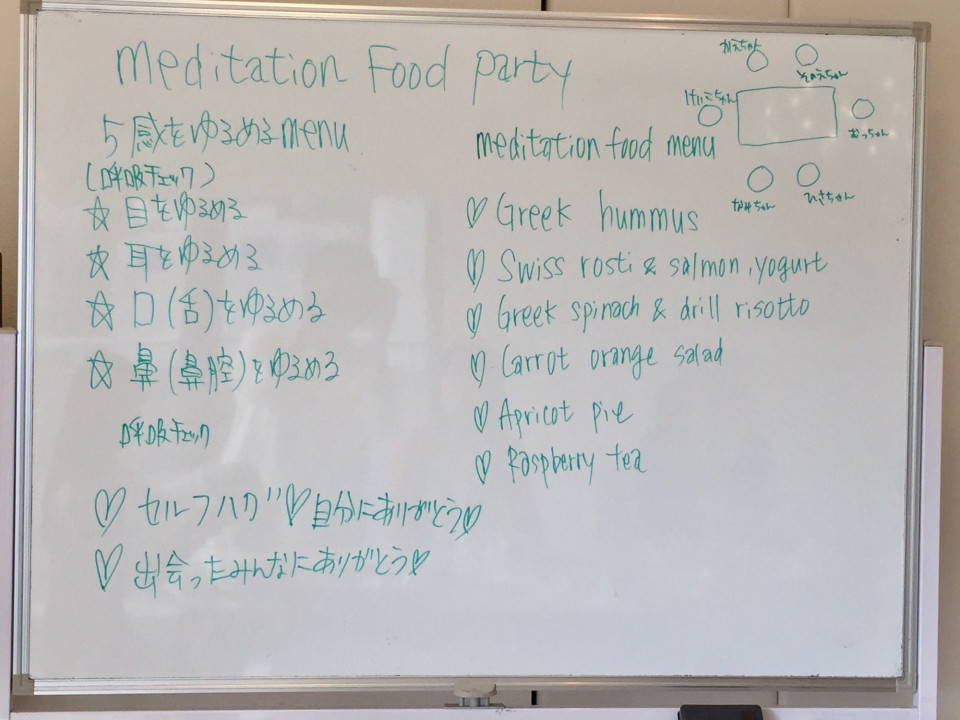 meditation Food party
5感をゆるめるmenu
(呼吸チェック)
☆ 目をゆるめる
☆ 耳をゆるめる
☆ 口(舌)をゆるめる
☆ 鼻(鼻腔)をゆるめる
呼吸チェック
♡ セルフハグ♡自分にありがとう♡
♡ 出会ったみんなにありがとう♡
meditation food menu
♡ Greek hummus
♡ Swiss rosti & salmon,yogurt
♡ Greek spinach & drill risotto
♡ Carrot orange salad
♡ Apricot pie
♡ Raspberry tea
けいこちゃん
ひさちゃん